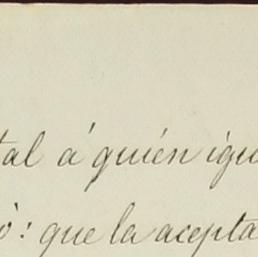 tal á quién igu
ó: que la acepta